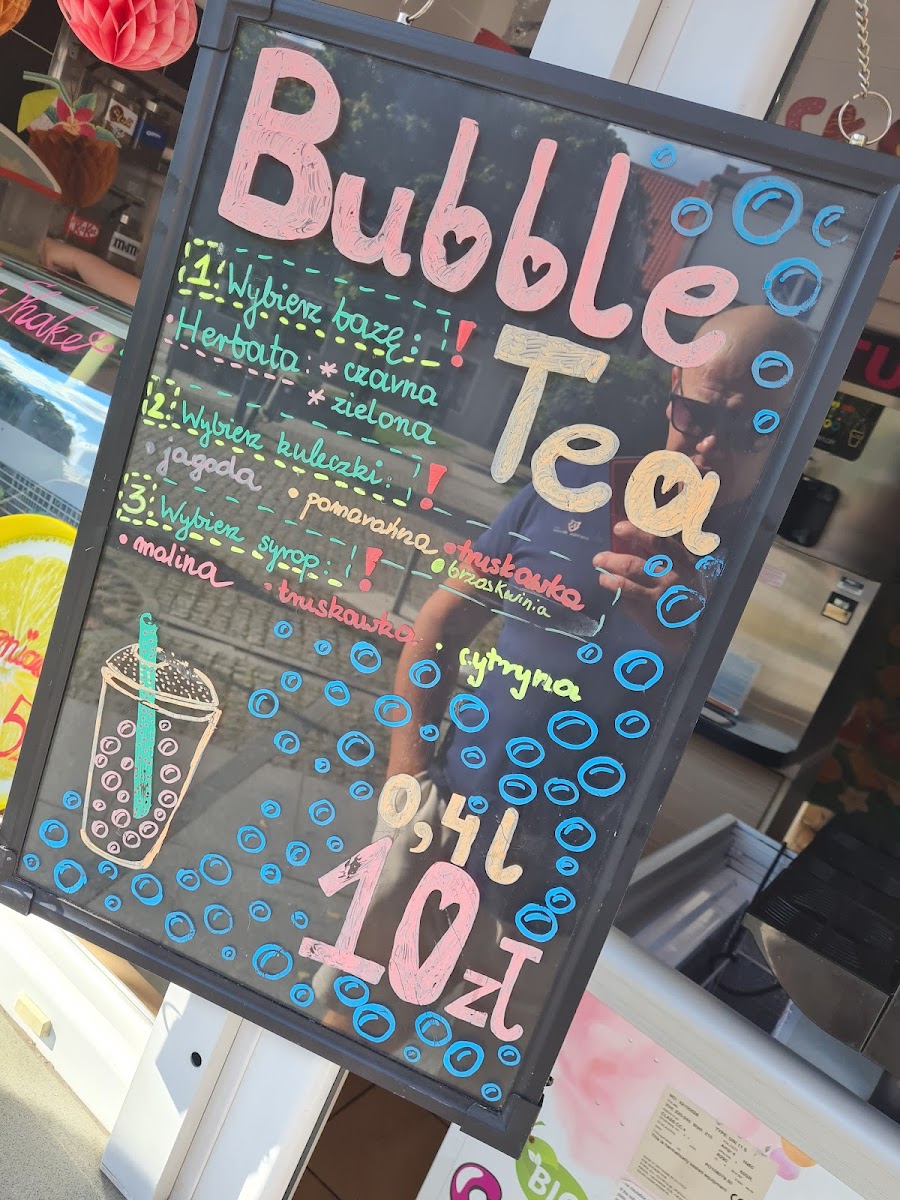 Bubble
Tea
1 Wybierz bazę: !
Herbata: * czarna
* zielona
2. Wybierz kuleczki: !
• jagoda • pomarańcza • truskawka
• brzoskwinia
3. Wybierz syrop: !
• malina • truskawka • cytryna
0,4l
10zł
Shake
m&m
BIO